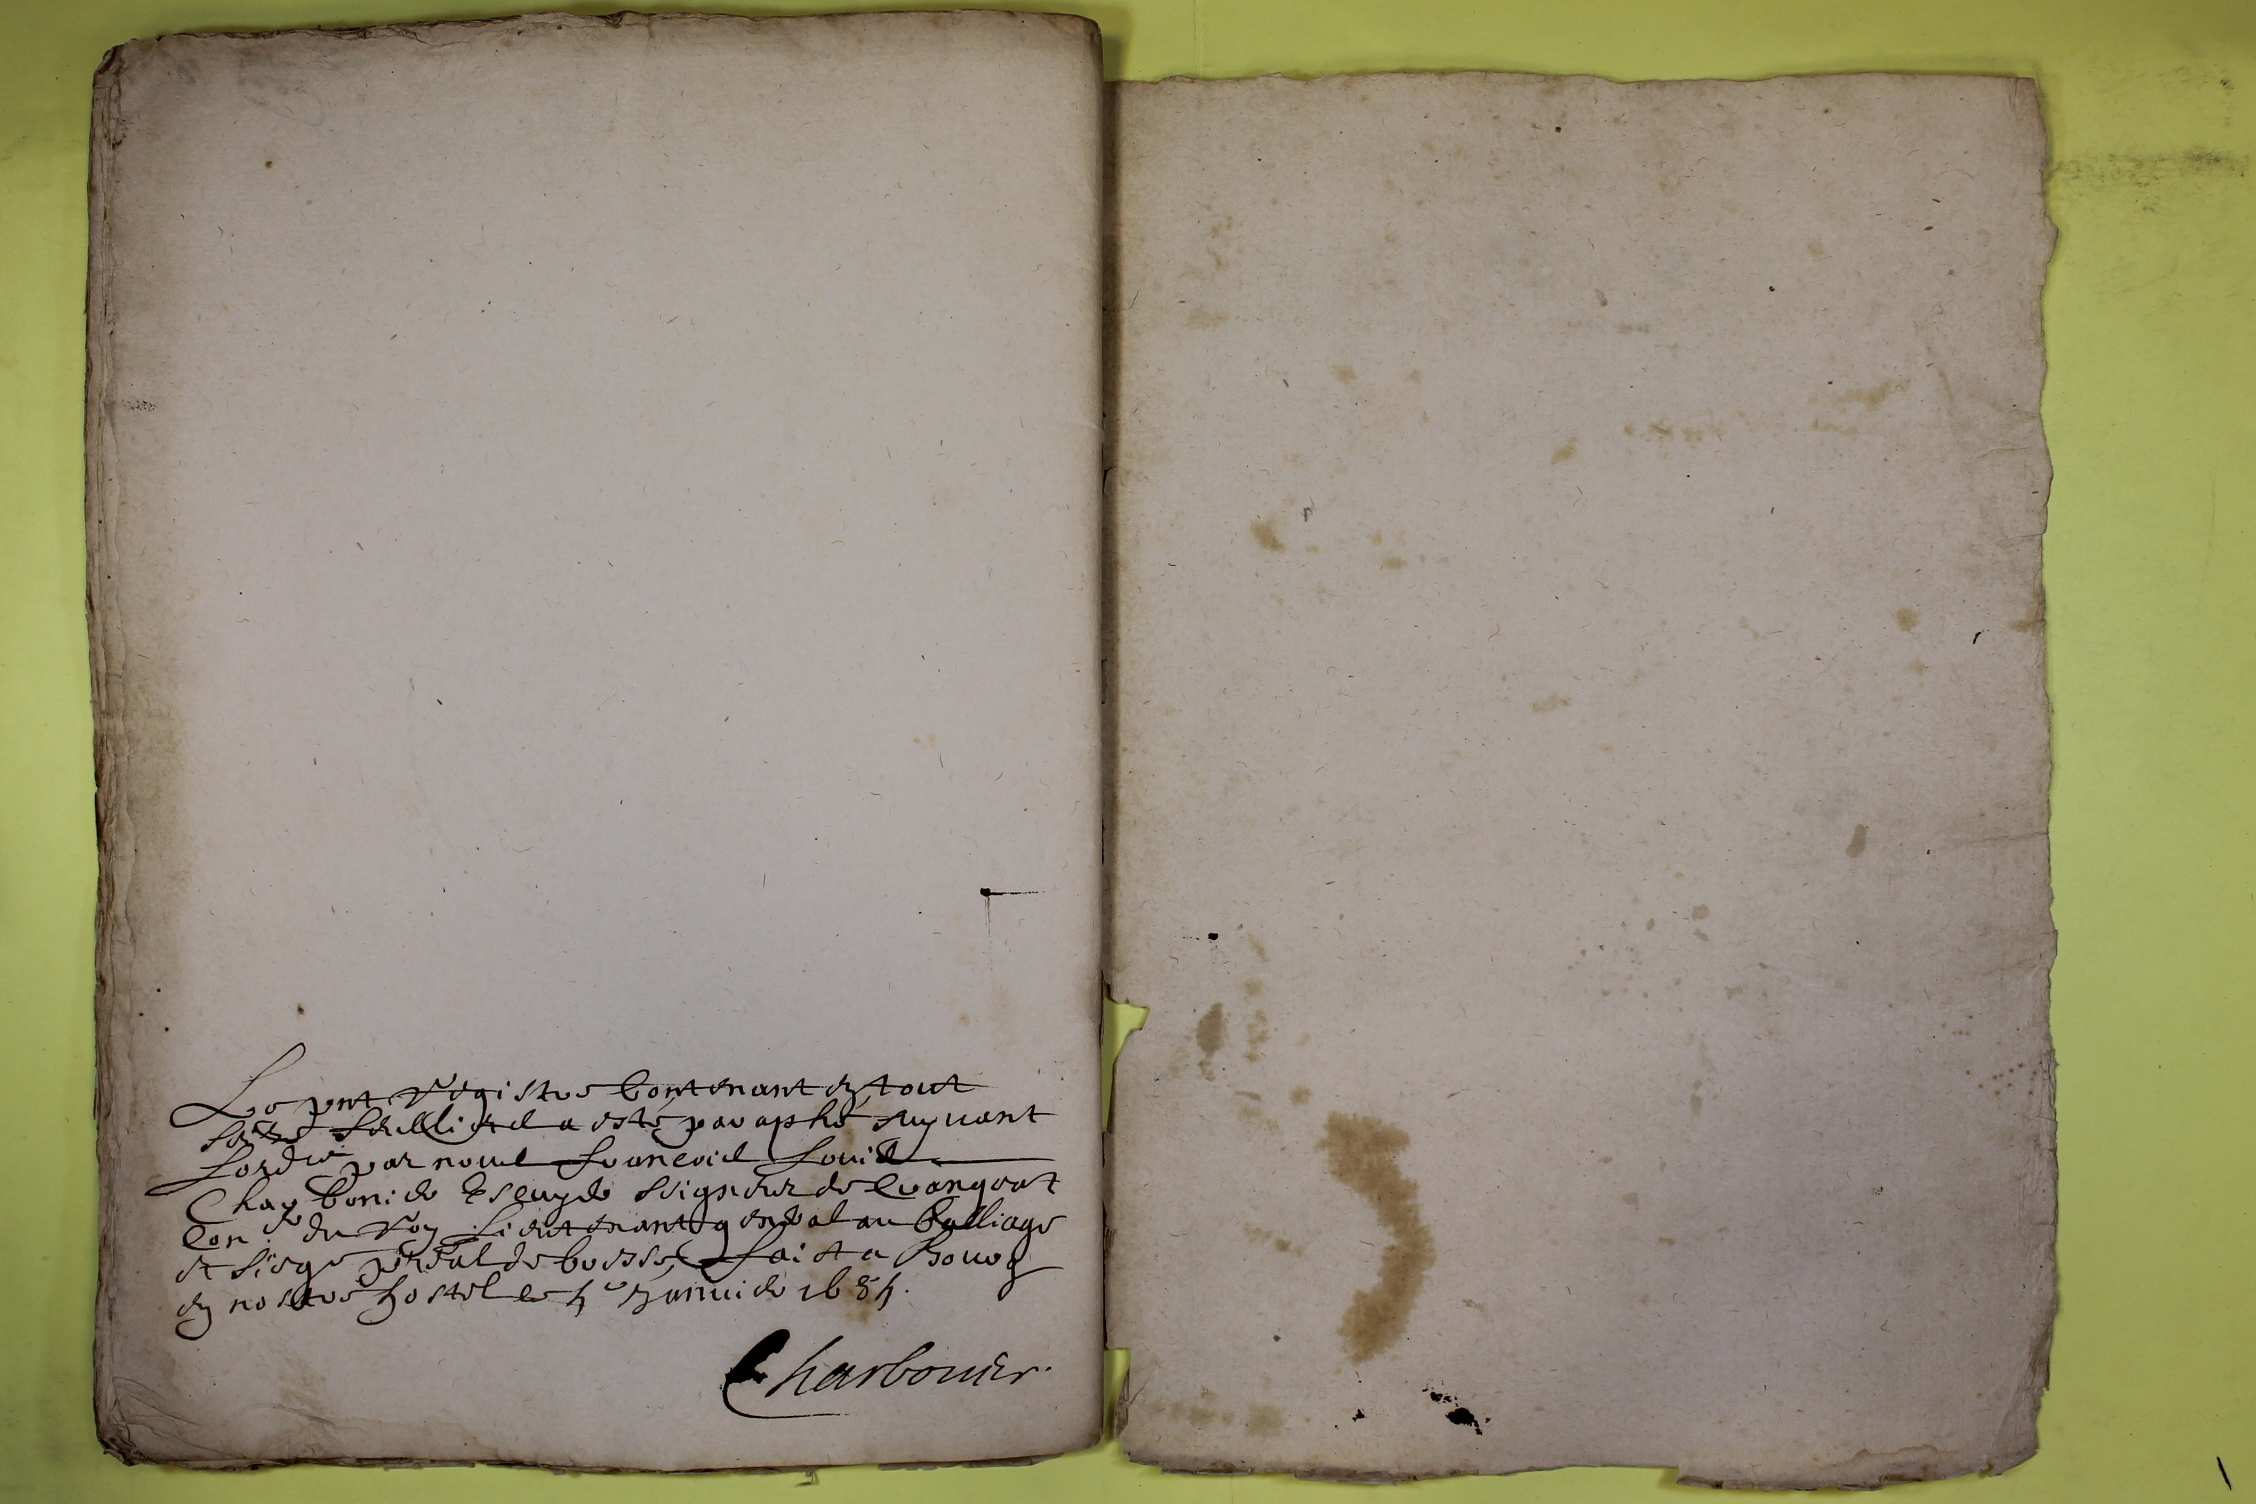 Le pnt Registre Contenant en tout
feuillietz a esté paraphé suyuant
lordre par nous francois Louis
Charbonier Escuyer Seigneur de Crangeat
Coner du Roy Lieutenant general au balliage
et siege pdial de bresse, faict a Bourg
en nostre hostel le 4e Januier 1684.
Charbonier.